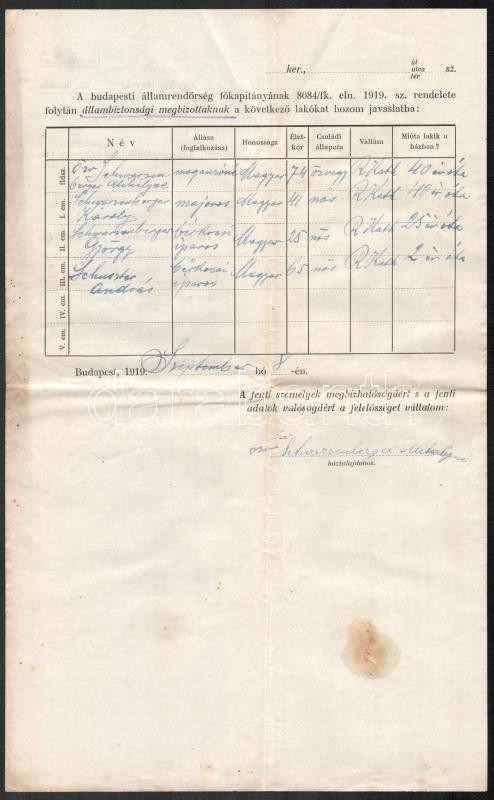 ker., út utca tér sz.
A budapesti államrendőrség főkapitányának 8084/fk. eln. 1919. sz. rendelete
folytán állambiztonsági megbizottaknak a következő lakókat hozom javaslatba:
Név Állása (foglalkozása) Honossága Élet-kor Családi állapota Vallása Mióta lakik a házban?
fldsz. Özv Mihályné magánzónő Magyar 74 özvegy R Kath 40 év óta
I. em. Schwarzenberger Karoly majoros Magyar 41 nős R Kath 40 év óta
II. em. Schwarzenberger György iparos Magyar 25 nős R Kath 25 év óta
III. em. Schuszter András iparos Magyar 65 nős R Kath 2 év óta
IV. em.
V. em.
Budapest, 1919. Szeptember hó 8 -én.
A fenti személyek megbizhatóságáért s a fenti
adatok valóságáért a felelősséget vállalom:
özv Schwarzenberger Mihályné
háztulajdonos.
darabanth